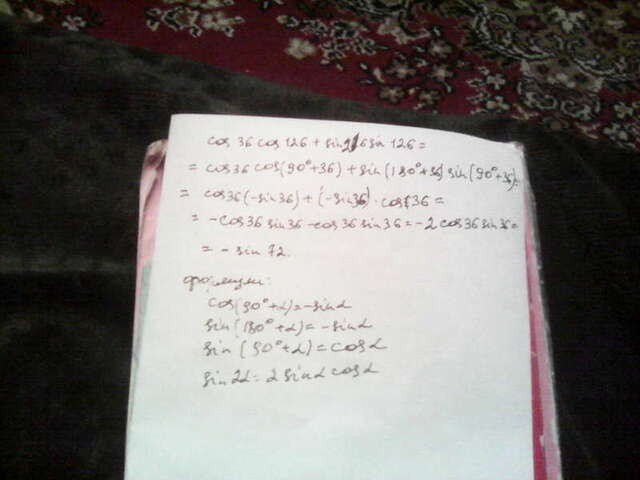 cos 36 cos 126 + sin 216 sin 126 =
= cos 36 cos(90°+36) + sin(180°+36) sin(90°+36) =
= cos 36 (-sin 36) + (-sin 36) · cos 36 =
= -cos 36 sin 36 - cos 36 sin 36 = -2 cos 36 sin 36 =
= - sin 72.
формулы:
cos(90°+α) = -sin α
sin(180°+α) = -sin α
sin(90°+α) = cos α
sin 2α = 2 sin α cos α